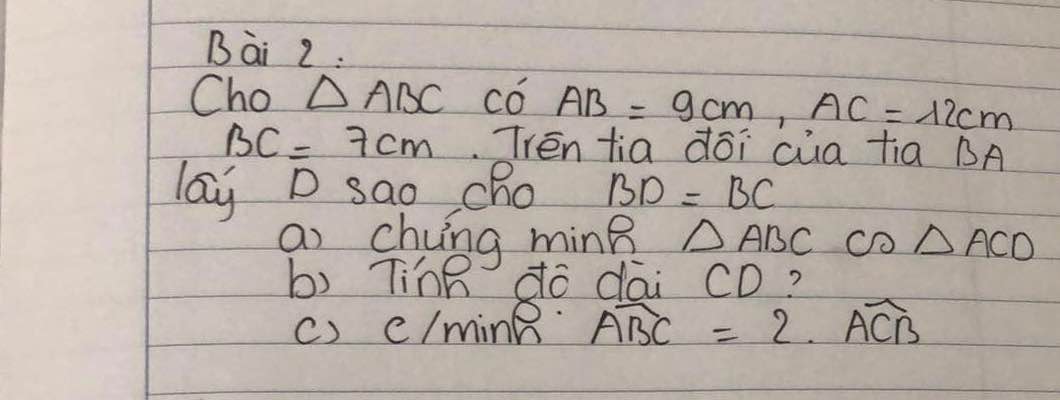 Bài 2:
Cho △ ABC có AB = 9cm, AC = 12cm
BC = 7cm. Trên tia đối của tia BA
lấy D sao cho BD = BC
a) chứng minh △ ABC ∽ △ ACD
b) Tính độ dài CD?
c) c/minh \widehat{ABC} = 2. \widehat{ACB}